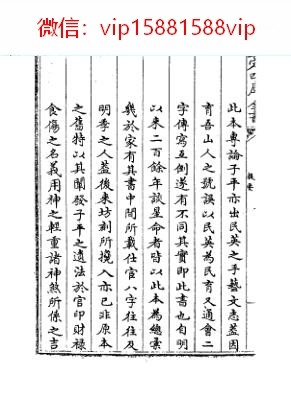 微信：vip15881588vip
此本專論子平亦出民英之手藝文志蓋因
育吾山人之號誤以民英為民育又通會二
字傳寫互倒遂有不同其實即此書也自明
以來二百餘年談星命者皆以此本為總彙
幾於家有其書中間所載仕宦八字往往及
明季之人蓋後來坊刻所攙入亦已非原本
之舊特以其闡發子平之遺法於官印財祿
食傷之名義用神之輕重諸神煞所係之吉
提要